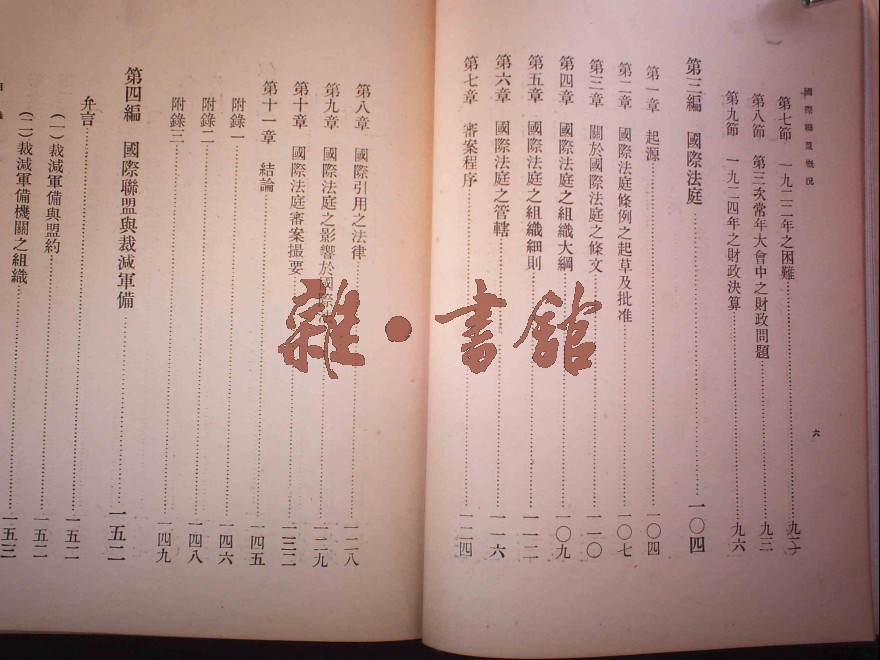 國際聯盟概況
六
第七節 一九二二年之困難……九一
第八節 第三次常年大會中之財政問題……九三
第九節 一九二四年之財政決算……九六
第三編 國際法庭……一〇四
第一章 起源……一〇四
第二章 國際法庭條例之起草及批准……一〇七
第三章 關於國際法庭之條文……一一〇
第四章 國際法庭之組織大綱……一〇九
第五章 國際法庭之組織細則……一一二
第六章 國際法庭之管轄……一一六
第七章 審案程序……一二四
第八章 國際引用之法律……一二八
第九章 國際法庭之影響於國際……一二九
第十章 國際法庭審案撮要……一三二
第十一章 結論……一四五
附錄一……一四六
附錄二……一四八
附錄三……一四九
第四編 國際聯盟與裁減軍備……一五二
弁言……一五二
(一)裁減軍備與盟約……一五二
(二)裁減軍備機關之組織……一五三
雜·書館